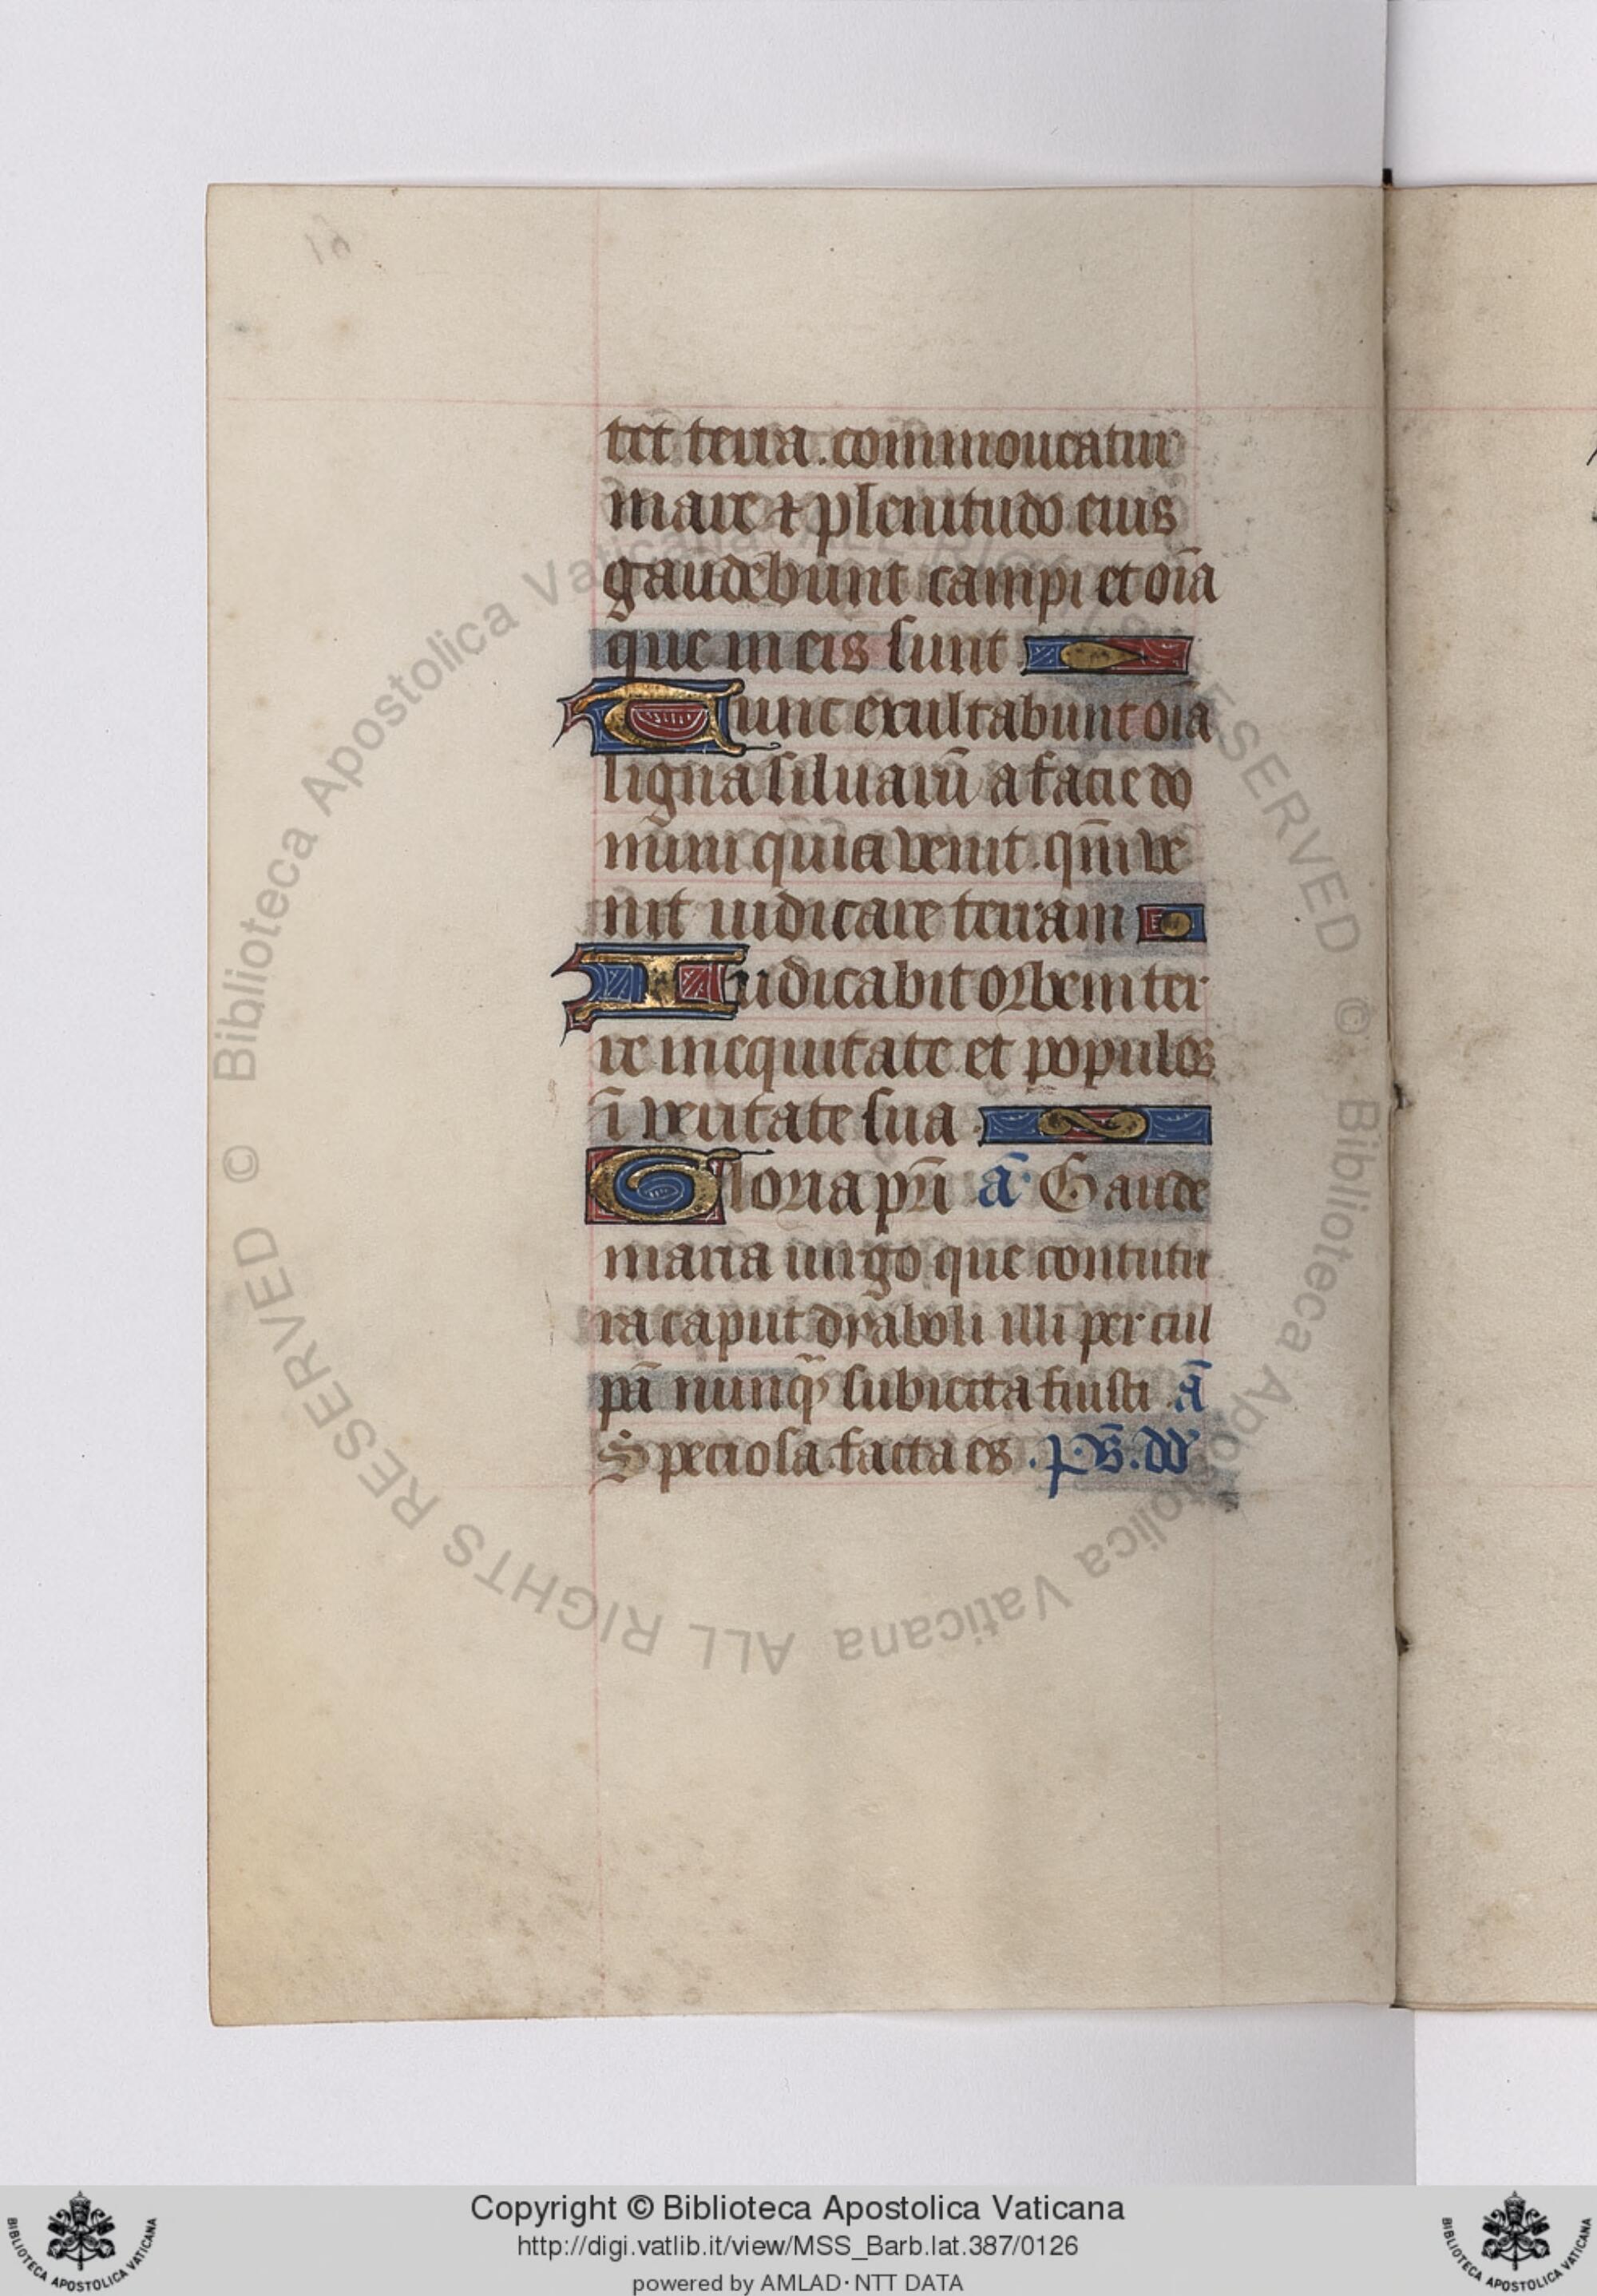 tet terra. commoueatur
mare ⁊ plenitudo eius
gaudebunt campi et oīa
que in eis sunt
Tunc exultabunt oīa
ligna siluarū a facie do
mini quia venit. qm̄ ve
nit iudicare terram
Iudicabit orbem ter
re in equitate et populos
ī veritate sua
Gloria pr̄i ā Gaude
maria uirgo que contutu
ra caput dyaboli illi per cul
pā nunq̄ subiecta fuisti ā
Speciosa facta es. ps̄. dd̄
Copyright © Biblioteca Apostolica Vaticana
http://digi.vatlib.it/view/MSS_Barb.lat.387/0126
powered by AMLAD·NTT DATA
BIBLIOTECA APOSTOLICA VATICANA
BIBLIOTECA APOSTOLICA VATICANA
© Biblioteca Apostolica Vaticana ALL RIGHTS RESERVED
© Biblioteca Apostolica Vaticana ALL RIGHTS RESERVED